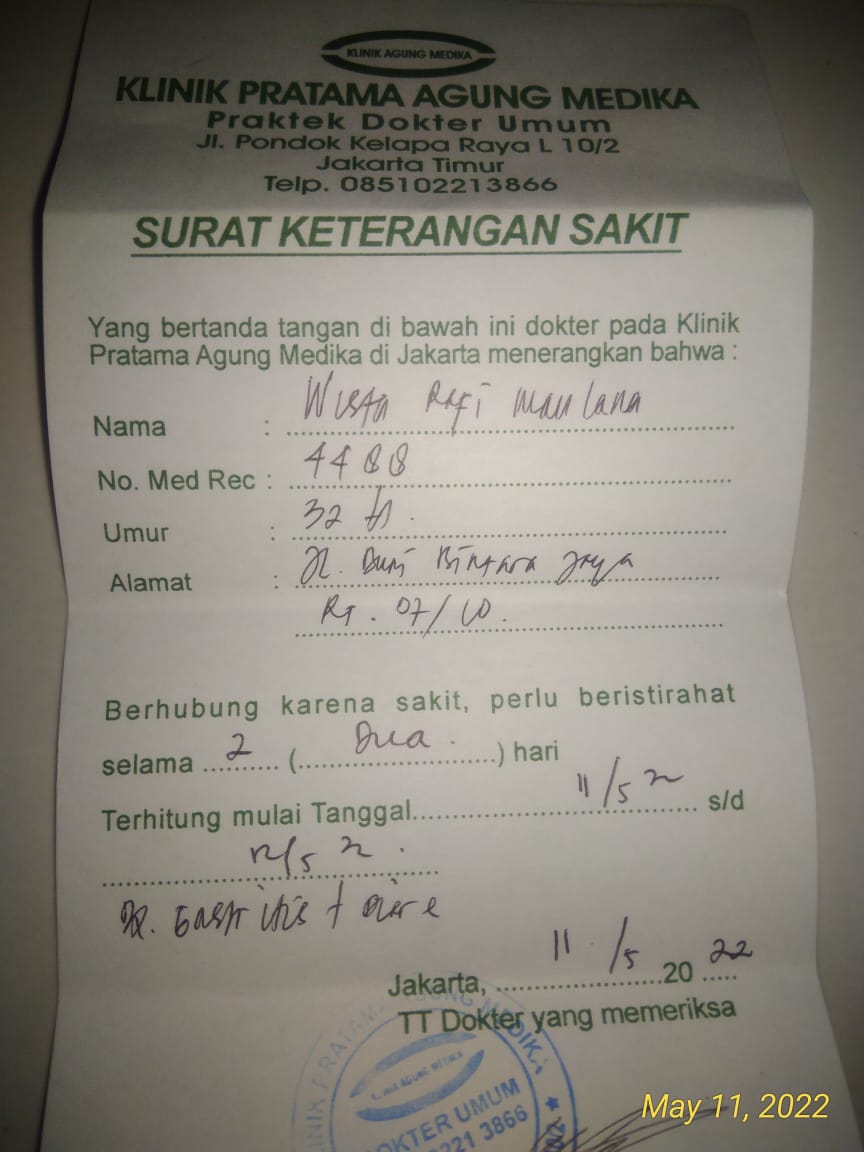 KLINIK AGUNG MEDIKA
KLINIK PRATAMA AGUNG MEDIKA
Praktek Dokter Umum
Jl. Pondok Kelapa Raya L 10/2
Jakarta Timur
Telp. 085102213866
SURAT KETERANGAN SAKIT
Yang bertanda tangan di bawah ini dokter pada Klinik
Pratama Agung Medika di Jakarta menerangkan bahwa :
Nama : Wista Rafi Maulana
No. Med Rec : 4488
Umur : 32 th.
Alamat : Jl. Bintara Jaya
RT. 07/10.
Berhubung karena sakit, perlu beristirahat
selama 2 (Dua) hari
Terhitung mulai Tanggal 11/5 22 s/d
12/5 22.
Dx. Gastritis + diare
Jakarta, 11/5 2022
TT Dokter yang memeriksa
AGUNG MEDIKA
DOKTER UMUM
221 3866
May 11, 2022